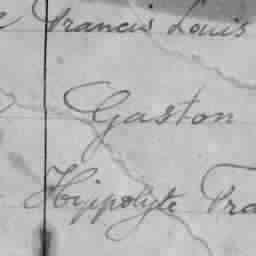 Francis Louis
Gaston
Hyppolyte Fra